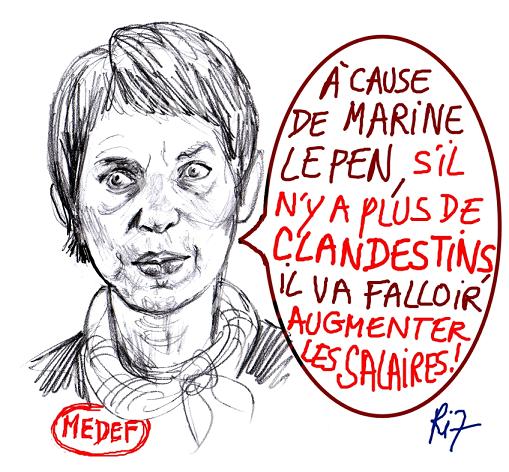 À CAUSE
DE MARINE
LE PEN, S'IL
N'Y A PLUS DE
CLANDESTINS
IL VA FALLOIR
AUGMENTER
LES SALAIRES!
MEDEF
Ri7